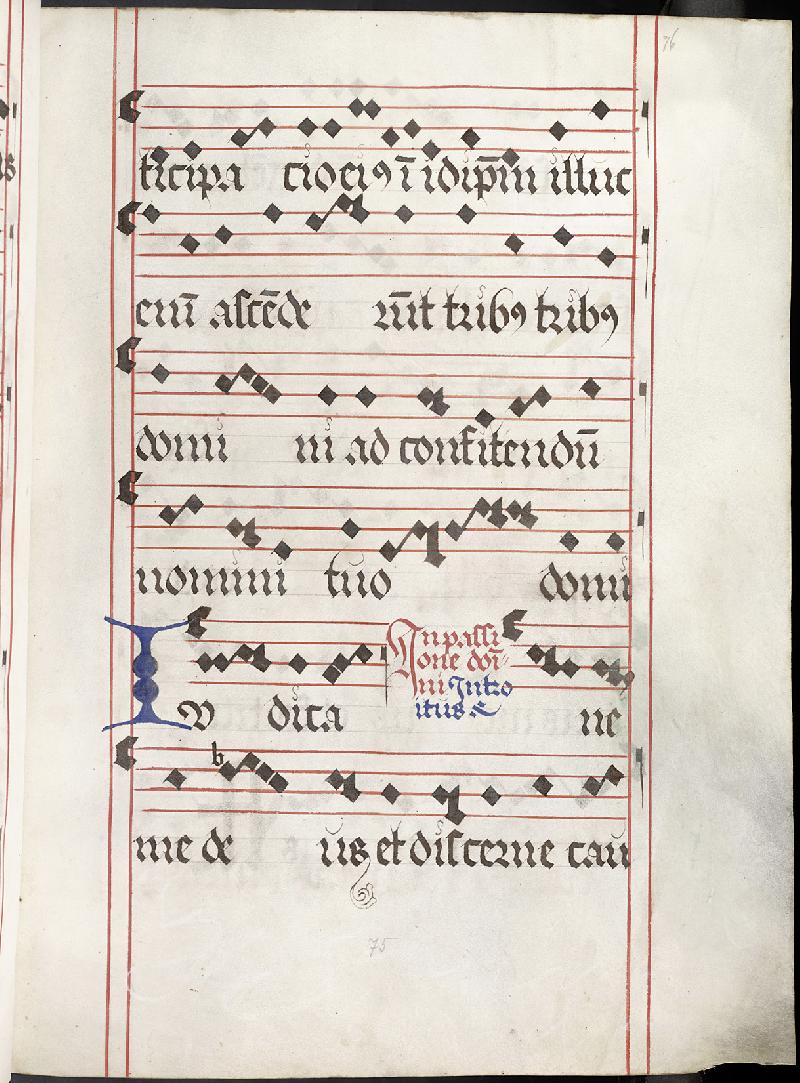 76
ticipa cio eiꝯ ĩ idip̃m illuc
eni᷒ ascẽde rũt tribꝯ tribꝯ
domi ni ad confitendũ
nomini tuo domi
In passi
one doi
ni Intro
itus
IV dica ne
b
me de us et discerne cau
75